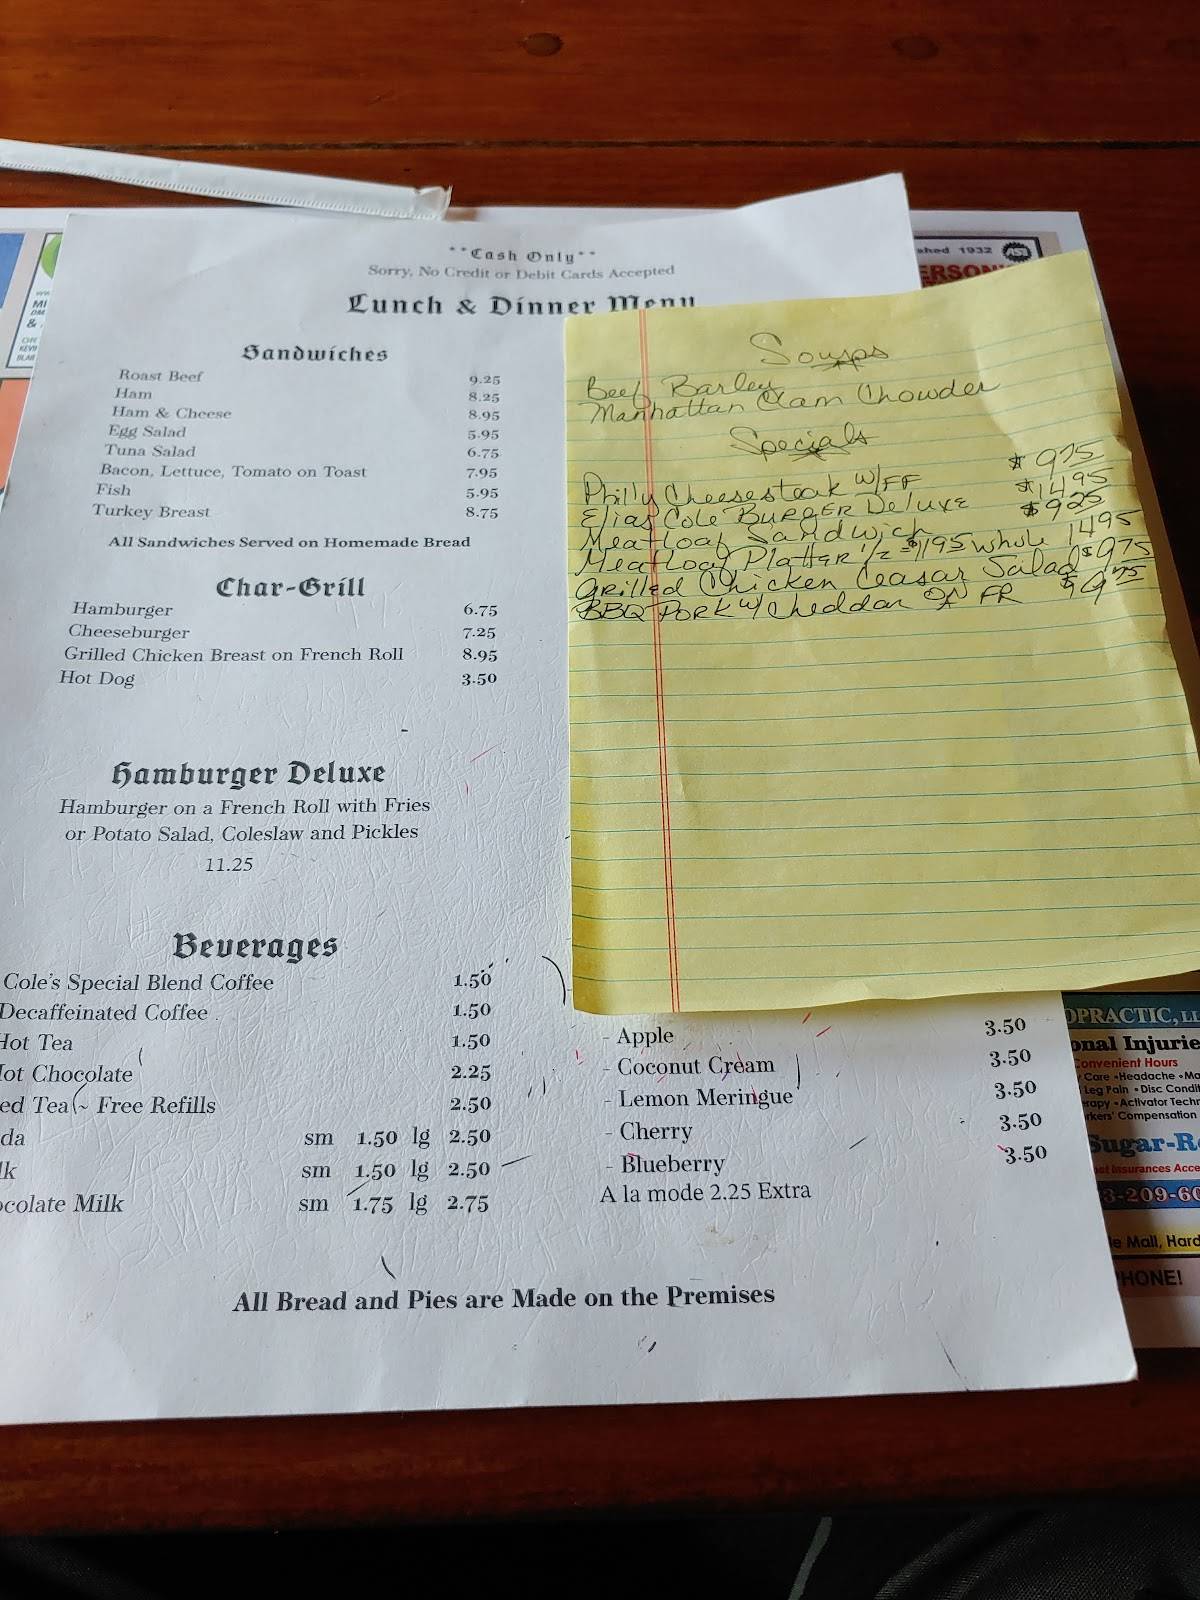 **Cash Only**
Sorry, No Credit or Debit Cards Accepted
Lunch & Dinner Menu
Sandwiches
Roast Beef 9.25
Ham 8.25
Ham & Cheese 8.95
Egg Salad 5.95
Tuna Salad 6.75
Bacon, Lettuce, Tomato on Toast 7.95
Fish 5.95
Turkey Breast 8.75
All Sandwiches Served on Homemade Bread
Char-Grill
Hamburger 6.75
Cheeseburger 7.25
Grilled Chicken Breast on French Roll 8.95
Hot Dog 3.50
Hamburger Deluxe
Hamburger on a French Roll with Fries
or Potato Salad, Coleslaw and Pickles
11.25
Beverages
Cole's Special Blend Coffee 1.50
Decaffeinated Coffee 1.50
Hot Tea 1.50
ot Chocolate 2.25
ed Tea ~ Free Refills 2.50
da sm 1.50 lg 2.50
lk sm 1.50 lg 2.50
ocolate Milk sm 1.75 lg 2.75
Soups
Beef Barley
Manhattan Clam Chowder
Specials
Philly Cheesesteak w/FF $975
Elias Cole BURGER DeluxE $1495
Meatloaf Sandwich $925
Meatloaf PlattER 1/2 = $1195 whole 1495
GRilled Chicken Ceasar Salad $975
BBQ PORK w/ Cheddar ON FR $975
- Apple 3.50
- Coconut Cream 3.50
- Lemon Meringue 3.50
- Cherry 3.50
- Blueberry 3.50
A la mode 2.25 Extra
All Bread and Pies are Made on the Premises
shed 1932
ERSON'S
OPRACTIC, LL
onal Injurie
Convenient Hours
Care • Headache • Ma
Leg Pain • Disc Condit
rapy • Activator Techn
rkers' Compensation
Sugar-R
Insurances Acce
3-209-60
le Mall, Hard
PHONE!